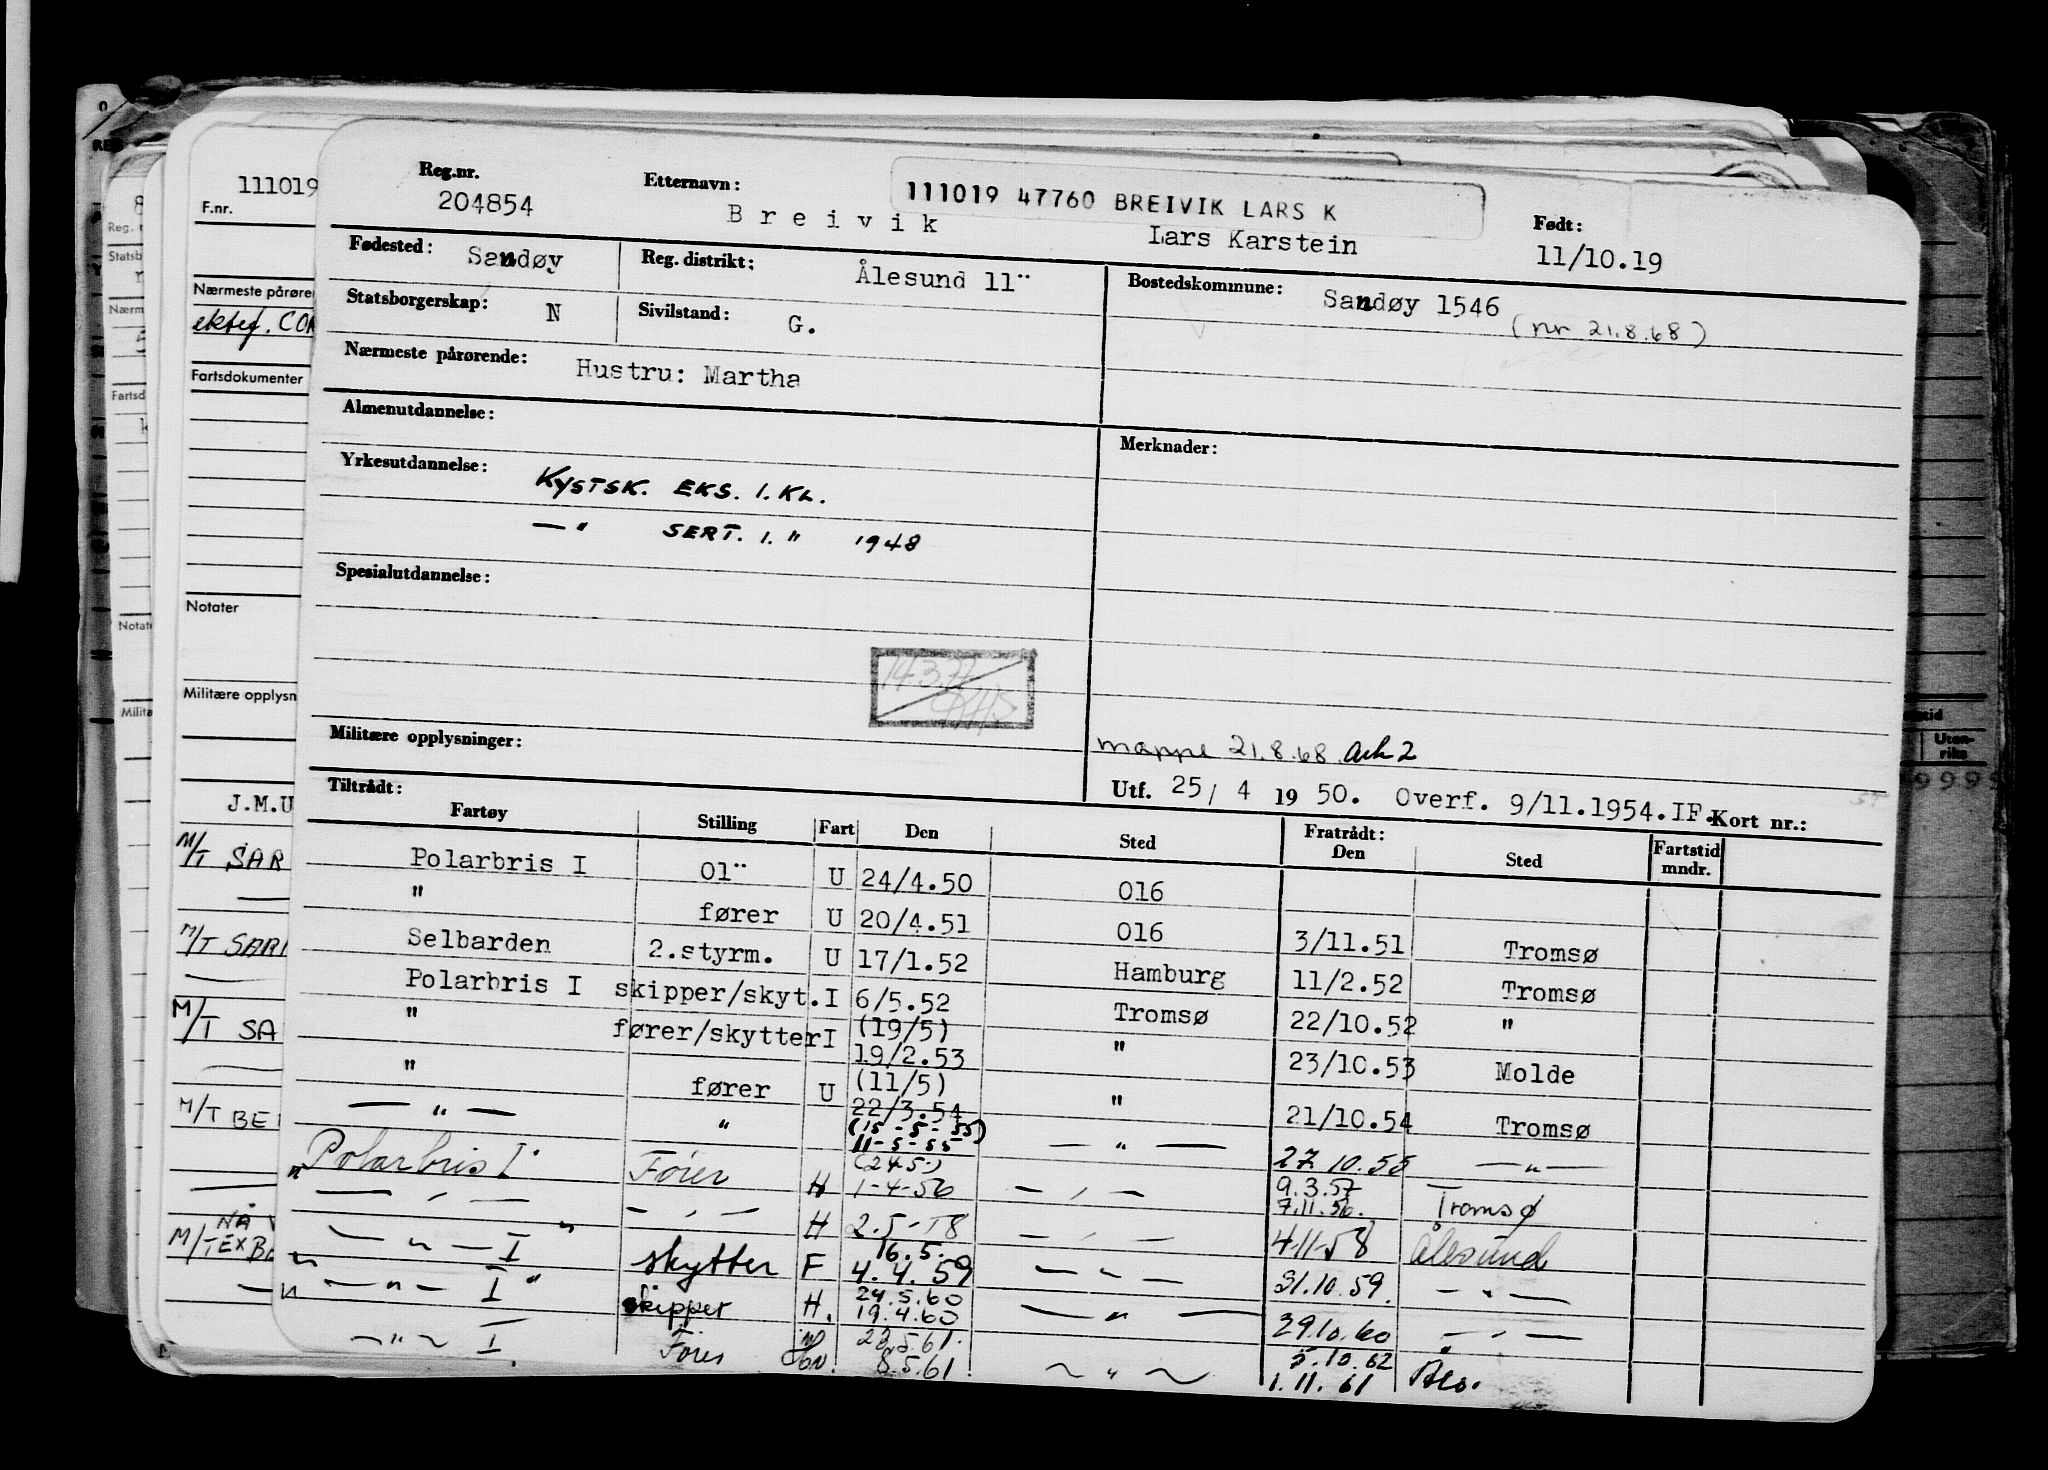 Reg.nr. Etternavn: 111019 47760 BREIVIK LARS K Født:
204854 Breivik Lars Karstein 11/10.19
Fødested: Sandøy Reg. distrikt: Ålesund 11¨ Bostedskommune: Sandøy 1546
(nr 21.8.68)
Statsborgerskap: N Sivilstand: G.
Nærmeste pårørende: Hustru: Martha
Almenutdannelse: Merknader:
Yrkesutdannelse: KYSTSK. EKS. 1. KL.
—"— SERT. 1. " 1948
Spesialutdannelse:
Militære opplysninger: mappe 21.8.68. Ark 2
Utf. 25/ 4 19 50. Overf. 9/11.1954.IF. Kort nr.:
Tiltrådt: Fratrådt:
Fartøy Stilling Fart Den Sted Den Sted Fartstid mndr.
Polarbris I 01¨ U 24/4.50 016
" fører U 20/4.51 016 3/11.51 Tromsø
Selbarden 2.styrm. U 17/1.52 Hamburg 11/2.52 Tromsø
Polarbris I skipper/skyt. I 6/5.52 Tromsø 22/10.52 "
(19/5)
" fører/skytter I 19/2.53 " 23/10.53 Molde
(11/5)
" fører U 22/3.54 " 21/10.54 Tromsø
(15-5-55)
— " — " 11-5-55 — " — 27.10.55 — " —
(24.5.)
"Polarbris I" Fører H 1-4-56 — " — 9.3.57
7.11.56. Tromsø
— " — — " — H 2.5-58 — " — 4-11-58 Ålesund
16.5.
— " — I " skytter F 4.4.59 — " — 31.10.59. — " —
24.5.60
" — " — I " skipper H. 19.4.60 — " — 29.10.60 — " —
23.5.61. 5.10.62
— " — I. Fører 8.5.61 — " — 1.11.61 Åls.
111019
F.nr.
Nærmeste pårøre
ektef. COR
Fartsdokumenter
Notater
Militære opplysn
J.M.U
M/T SAR
M/T SARI
M/T SA
M/T BE
NÅ
M/T EX BE
Reg. n
Statsb
Nærm
Fartsd
Notate
Milita
Uten-
riks